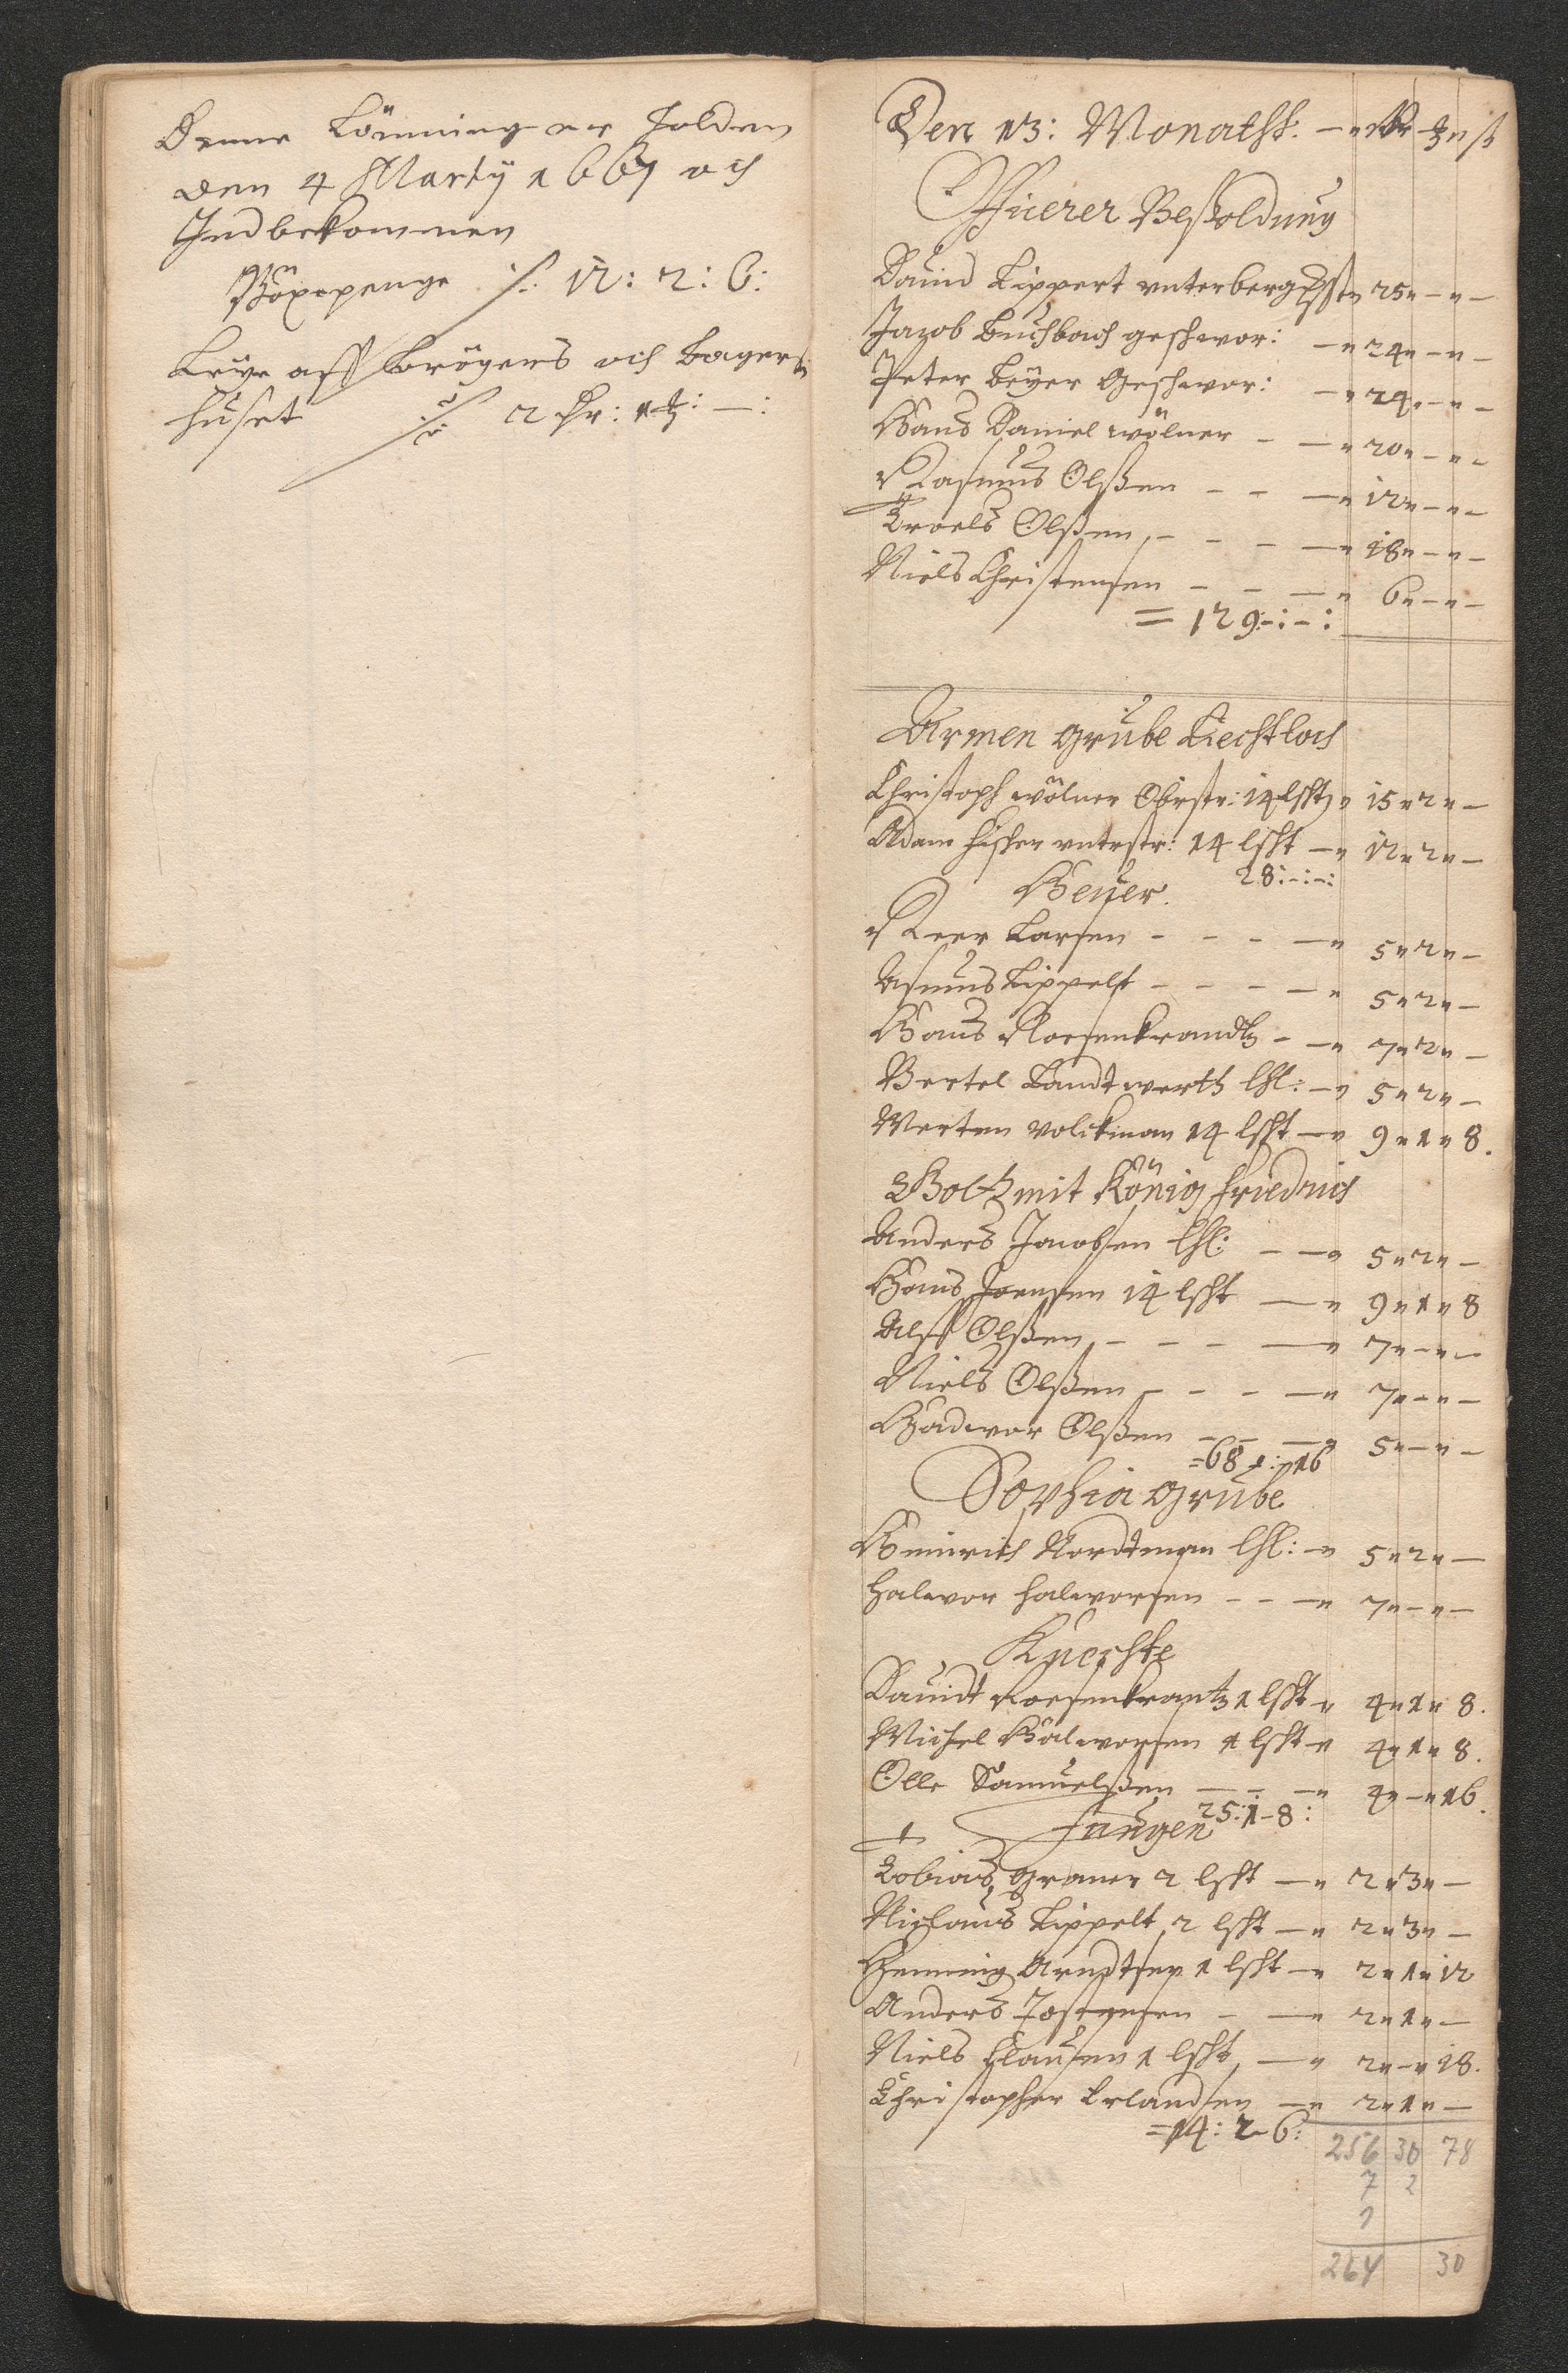 Denne Lönning er holden
den 4 Martÿ 1661 och
Indbekommen
Böxepenge ·/. 12: 2: 6:
Leÿe aff Brÿgers och Bagers
huset ·/. 2 Dr: 1 : —:
Den 13: Monathß. —
Officerer Beßoldung
Dauid Lippert vnterberg 25 " — " —
Jacob Buchbach geschwor: — " 24 " — " —
Peter Beÿer Geschwor: — " 24 " — " —
Hans Daniel wölner - — " 20 " — " —
Rasmus Olßen - - — " 12 " — " —
Troels Olßen - - - — " 18 " — " —
Niels Christensen - - — " 6 " — " —
= 129:-:-:
Armen grube Liechtloch
Christoph wölner Obrstr: 14 lßht " 15 " 2 " —
Adam fischer vntrstr: 14 lßht — " 12 " 2 " —
28:-:-:
Heuer.
Peer Larsen - - - — " 5 " 2 " —
Asmus Lippelt - - - — " 5 " 2 " —
Hans Rosenkrandtz - — " 7 " 2 " —
Bertel Landtwerth lßl: — " 5 " 2 " —
Merten Volckman 14 lßht — " 9 " 1 " 8.
Holtz mit König friedrich
Anders Jacobsen lßl: - — " 5 " 2 " —
Hans Joensen 14 lßht — " 9 " 1 " 8
Alff Olßen - - - — " 7 " — " —
Niels Olßen - - - — " 7 " — " —
Hadwor Olßen - - — " 5 " — " —
=68 1: 16
Sophia grube
Heinrich Nordtman lßl: — " 5 " 2 " —
Halwor halworsen - - — " 7 " — " —
Knechte
Dauidt Rosenkrantz 1 lßht " 4 " 1 " 8.
Michel Halworsen 1 lßht " 4 " 1 " 8.
Olle Samuelßen — - — " 4 " — " 16.
25:1-8:
Jungen
Tobias Graner 2 lßht — " 2 " 3 " —
Niclaus Lippelt 2 lßht — " 2 " 3 " —
Henning Arndtsen 1 lßht — " 2 " 1 " 12
Anders Jostensen - — " 2 " 1 " —
Niels Clausen 1 lßht — " 2 " — " 18.
Christopher Erlandsen — " 2 " 1 " —
=14: 2-6:
256 30 78
7 2
1
264 30